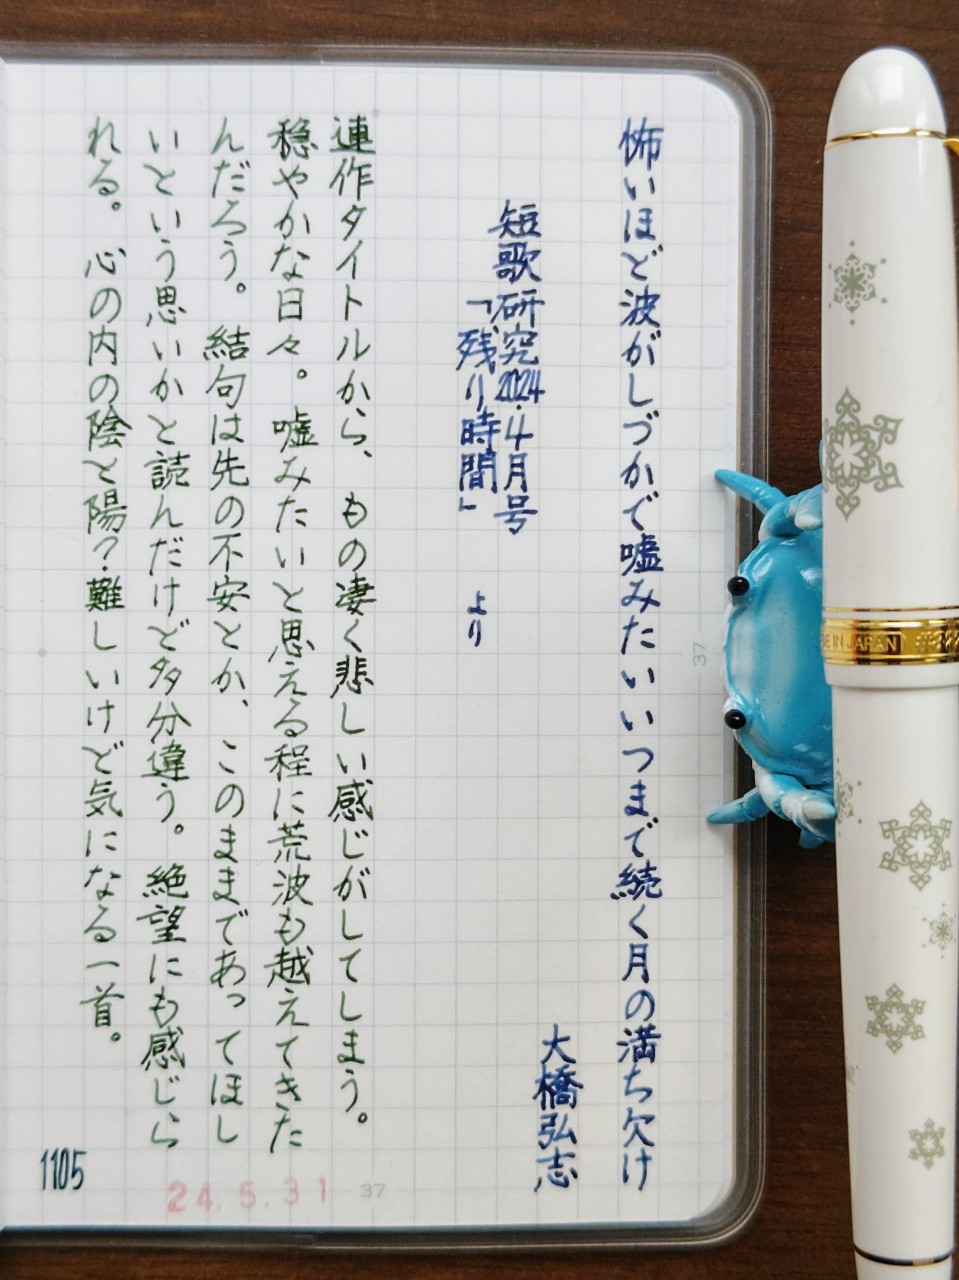 怖いほど波がしづかで嘘みたいいつまで続く月の満ち欠け
大橋弘志
短歌研究2024.4月号
「残り時間」 より
連作タイトルから、もの凄く悲しい感じがしてしまう。
穏やかな日々。嘘みたいと思える程に荒波も越えてきた
んだろう。結句は先の不安とか、このままであってほし
いという思いかと読んだけど多分違う。絶望にも感じら
れる。心の内の陰と陽?難しいけど気になる一首。
1105
24.5.31
37
37
DE IN JAPAN